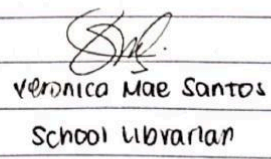 Veronica Mae Santos
School Librarian